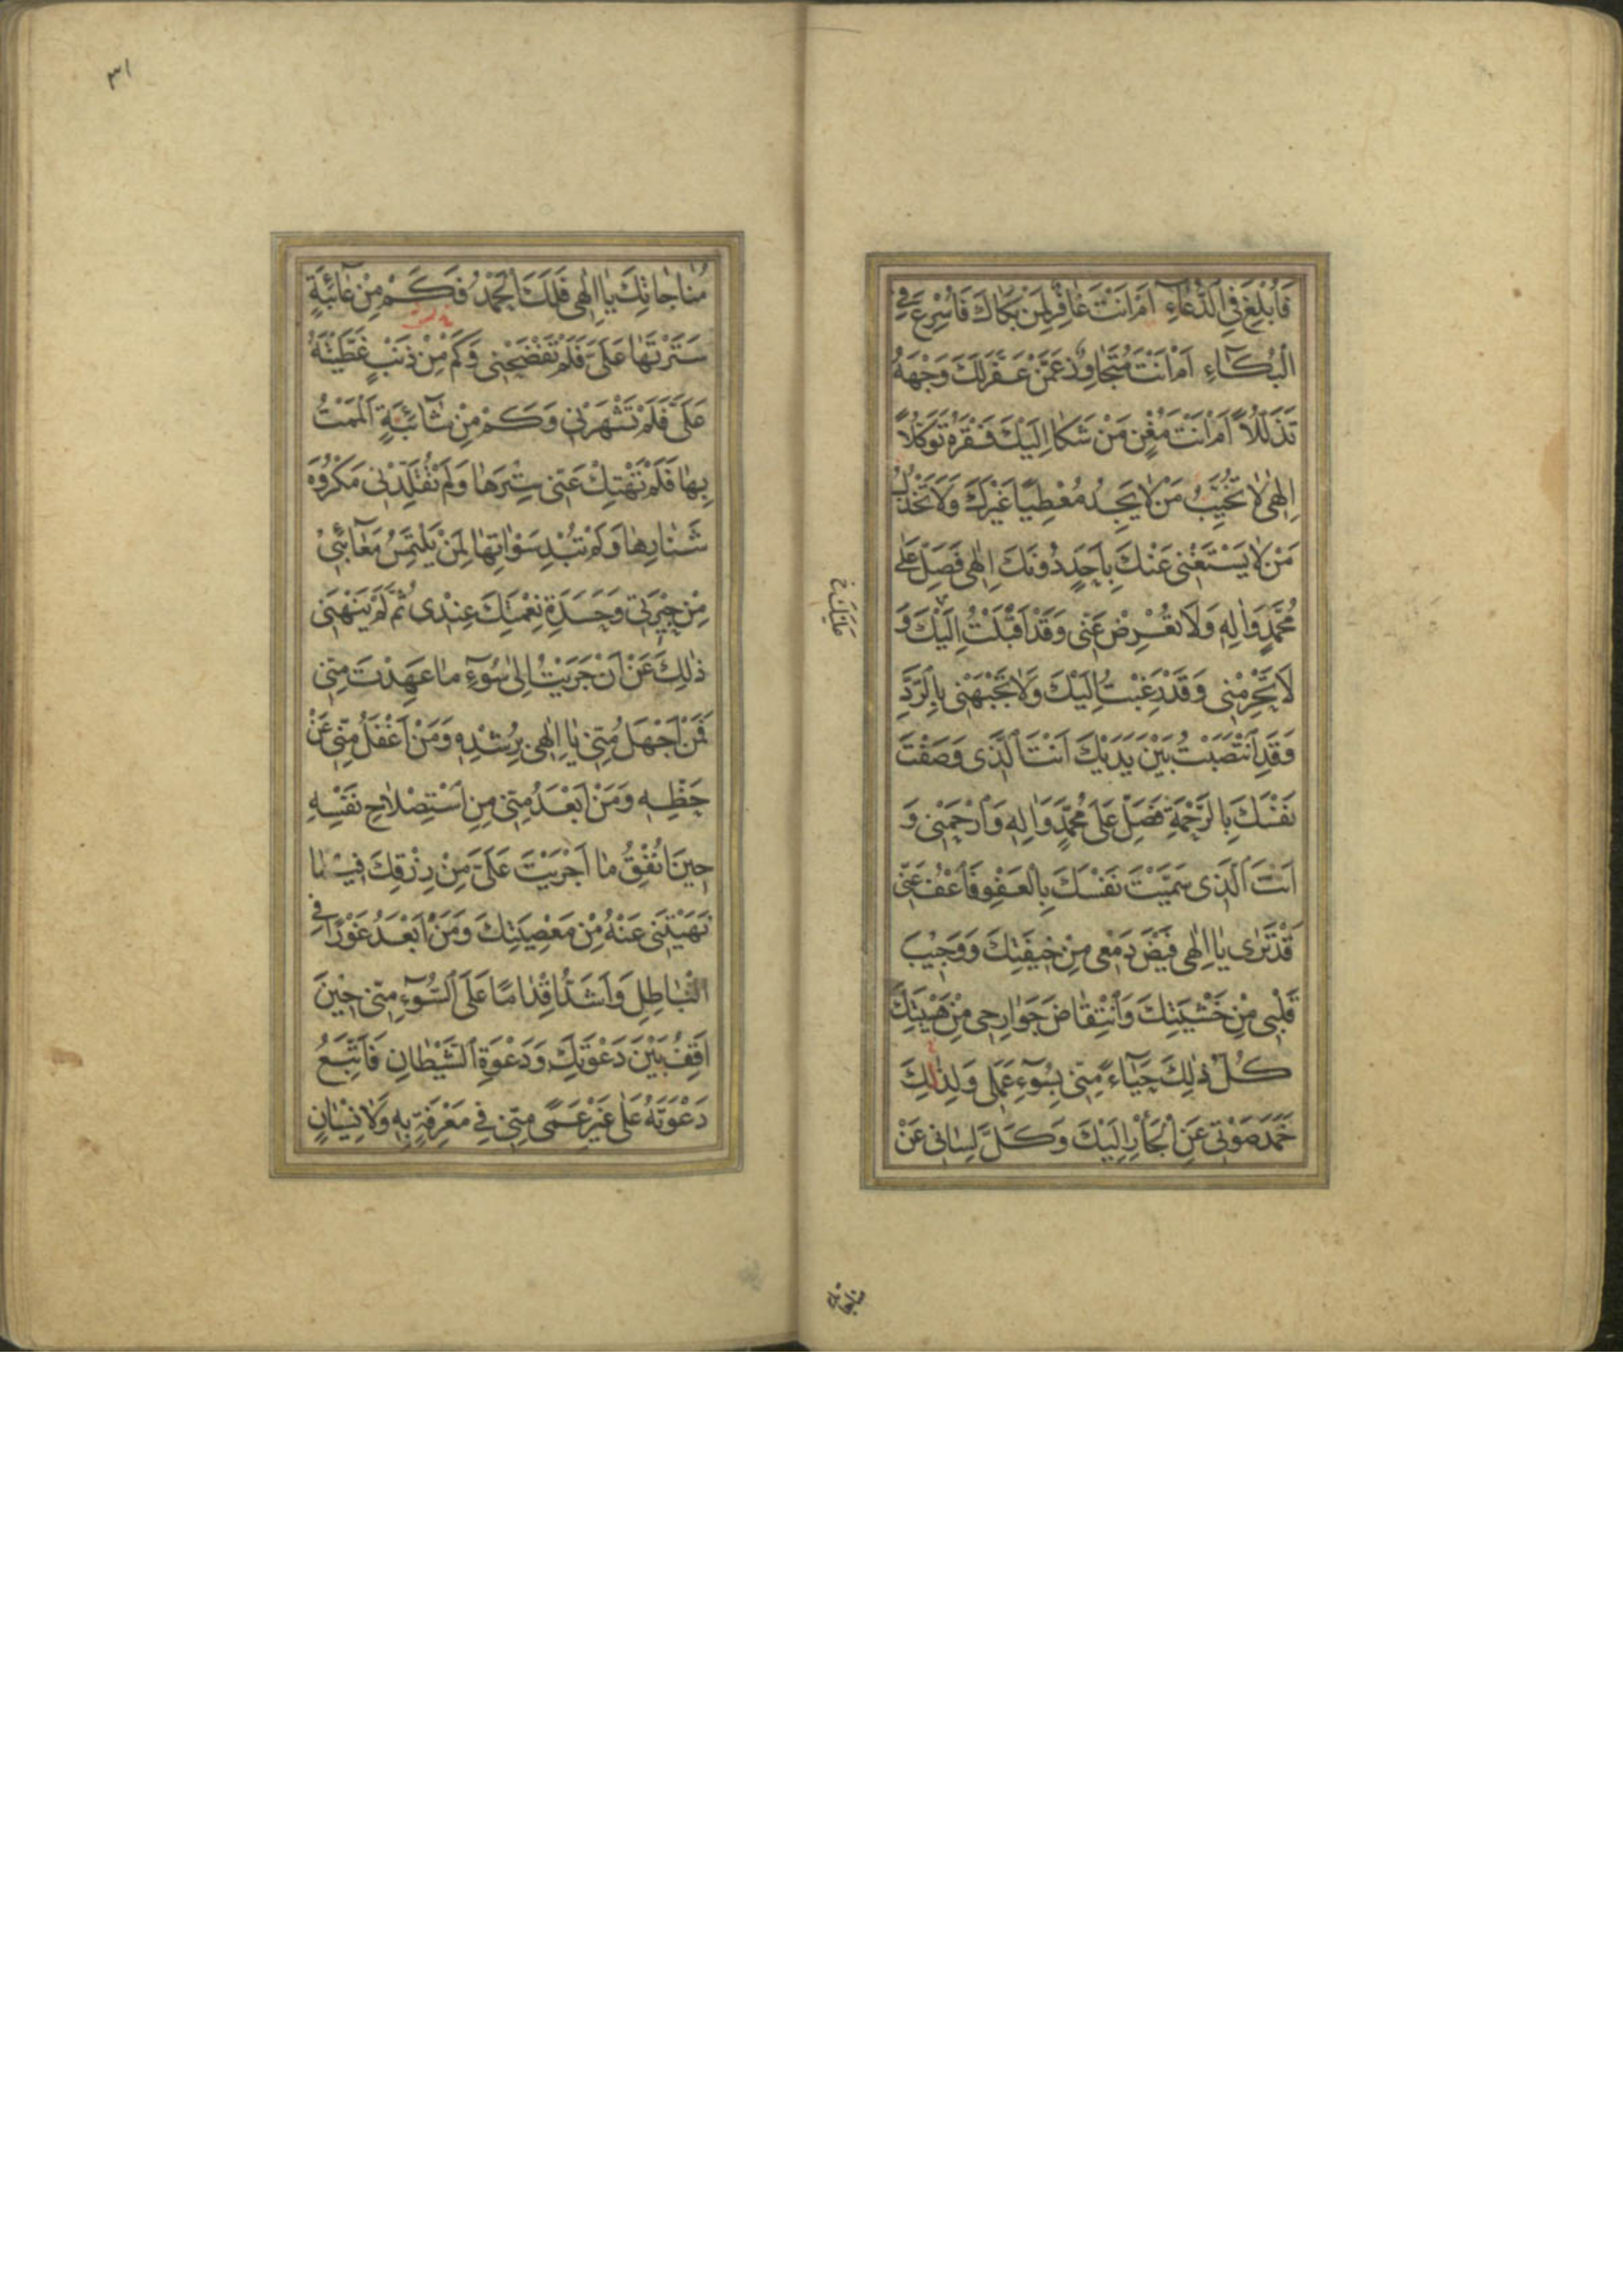 فَاُبْلِغَ فِي الدُّعَاءِ اَمْ اَنْتَ غَافِرٌ لِمَنْ بَكَاكَ فَاُسْرِعَ فِي
الْبُكَاءِ اَمْ اَنْتَ مُتَجَاوِزٌ عَمَّنْ عَفَّرَ لَكَ وَجْهَهُ
تَذَلُّلاً اَمْ اَنْتَ مُغْنٍ مَنْ شَكَا اِلَيْكَ فَقْرَهُ تَوَكُّلاً
اِلٰهِي لَا تُخَيِّبْ مَنْ لَا يَجِدُ مُعْطِيًا غَيْرَكَ وَلَا تَخْذُلْ
مَنْ لَا يَسْتَغْنِي عَنْكَ بِاَحَدٍ دُونَكَ اِلٰهِي فَصَلِّ عَلَى
مُحَمَّدٍ وَاٰلِهِ وَلَا تُعْرِضْ عَنِّي وَقَدْ اَقْبَلْتُ اِلَيْكَ وَ
عَلَيْكَ خ
لَا تَحْرِمْنِي وَقَدْ رَغِبْتُ اِلَيْكَ وَلَا تَجْبَهْنِي بِالرَّدِّ
وَقَدِ انْتَصَبْتُ بَيْنَ يَدَيْكَ اَنْتَ الَّذِي وَصَفْتَ
نَفْسَكَ بِالرَّحْمَةِ فَصَلِّ عَلَى مُحَمَّدٍ وَاٰلِهِ وَارْحَمْنِي وَ
اَنْتَ الَّذِي سَمَّيْتَ نَفْسَكَ بِالْعَفْوِ فَاعْفُ عَنِّي
قَدْ تَرٰى يَا اِلٰهِي فَيْضَ دَمْعِي مِنْ خِيفَتِكَ وَوَجِيبَ
قَلْبِي مِنْ خَشْيَتِكَ وَانْتِقَاضَ جَوَارِحِي مِنْ هَيْبَتِكَ
كُلُّ ذٰلِكَ حَيَاءً مِنِّي بِسُوءِ عَمَلِي وَلِذٰلِكَ
خَمَدَ صَوْتِي عَنِ الْجَأْرِ اِلَيْكَ وَكَلَّ لِسَانِي عَنْ
مناجاتك
٣١
مُنَاجَاتِكَ يَا اِلٰهِي فَلَكَ الْحَمْدُ فَكَمْ مِنْ عَائِبَةٍ
سَتَرْتَهَا عَلَيَّ فَلَمْ تَفْضَحْنِي وَكَمْ مِنْ ذَنْبٍ غَطَّيْتَهُ
عَلَيَّ فَلَمْ تَشْهَرْنِي وَكَمْ مِنْ شَائِبَةٍ اَلْمَمْتُ
بِهَا فَلَمْ تَهْتِكْ عَنِّي سِتْرَهَا وَلَمْ تُقَلِّدْنِي مَكْرُوهَ
شَنَارِهَا وَلَمْ تُبْدِ سَوْاٰتِهَا لِمَنْ يَلْتَمِسُ مَعَائِبِي
مِنْ جِيرَتِي وَحَسَدَةِ نِعْمَتِكَ عِنْدِي ثُمَّ لَمْ يَنْهَنِي
ذٰلِكَ عَنْ اَنْ جَرَيْتُ اِلٰى سُوءِ مَا عَهِدْتَ مِنِّي
فَمَنْ اَجْهَلُ مِنِّي يَا اِلٰهِي بِرُشْدِهِ وَمَنْ اَغْفَلُ مِنِّي عَنْ
حَظِّهِ وَمَنْ اَبْعَدُ مِنِّي مِنِ اسْتِصْلَاحِ نَفْسِهِ
حِينَ اُنْفِقُ مَا اَجْرَيْتَ عَلَيَّ مِنْ رِزْقِكَ فِيمَا
نَهَيْتَنِي عَنْهُ مِنْ مَعْصِيَتِكَ وَمَنْ اَبْعَدُ غَوْرًا فِي
الْبَاطِلِ وَاَشَدُّ اِقْدَامًا عَلَى السُّوءِ مِنِّي حِينَ
اَقِفُ بَيْنَ دَعْوَتِكَ وَدَعْوَةِ الشَّيْطَانِ فَاَتَّبِعُ
دَعْوَتَهُ عَلٰى غَيْرِ عَمًى مِنِّي فِي مَعْرِفَةٍ بِهِ وَلَا نِسْيَانٍ